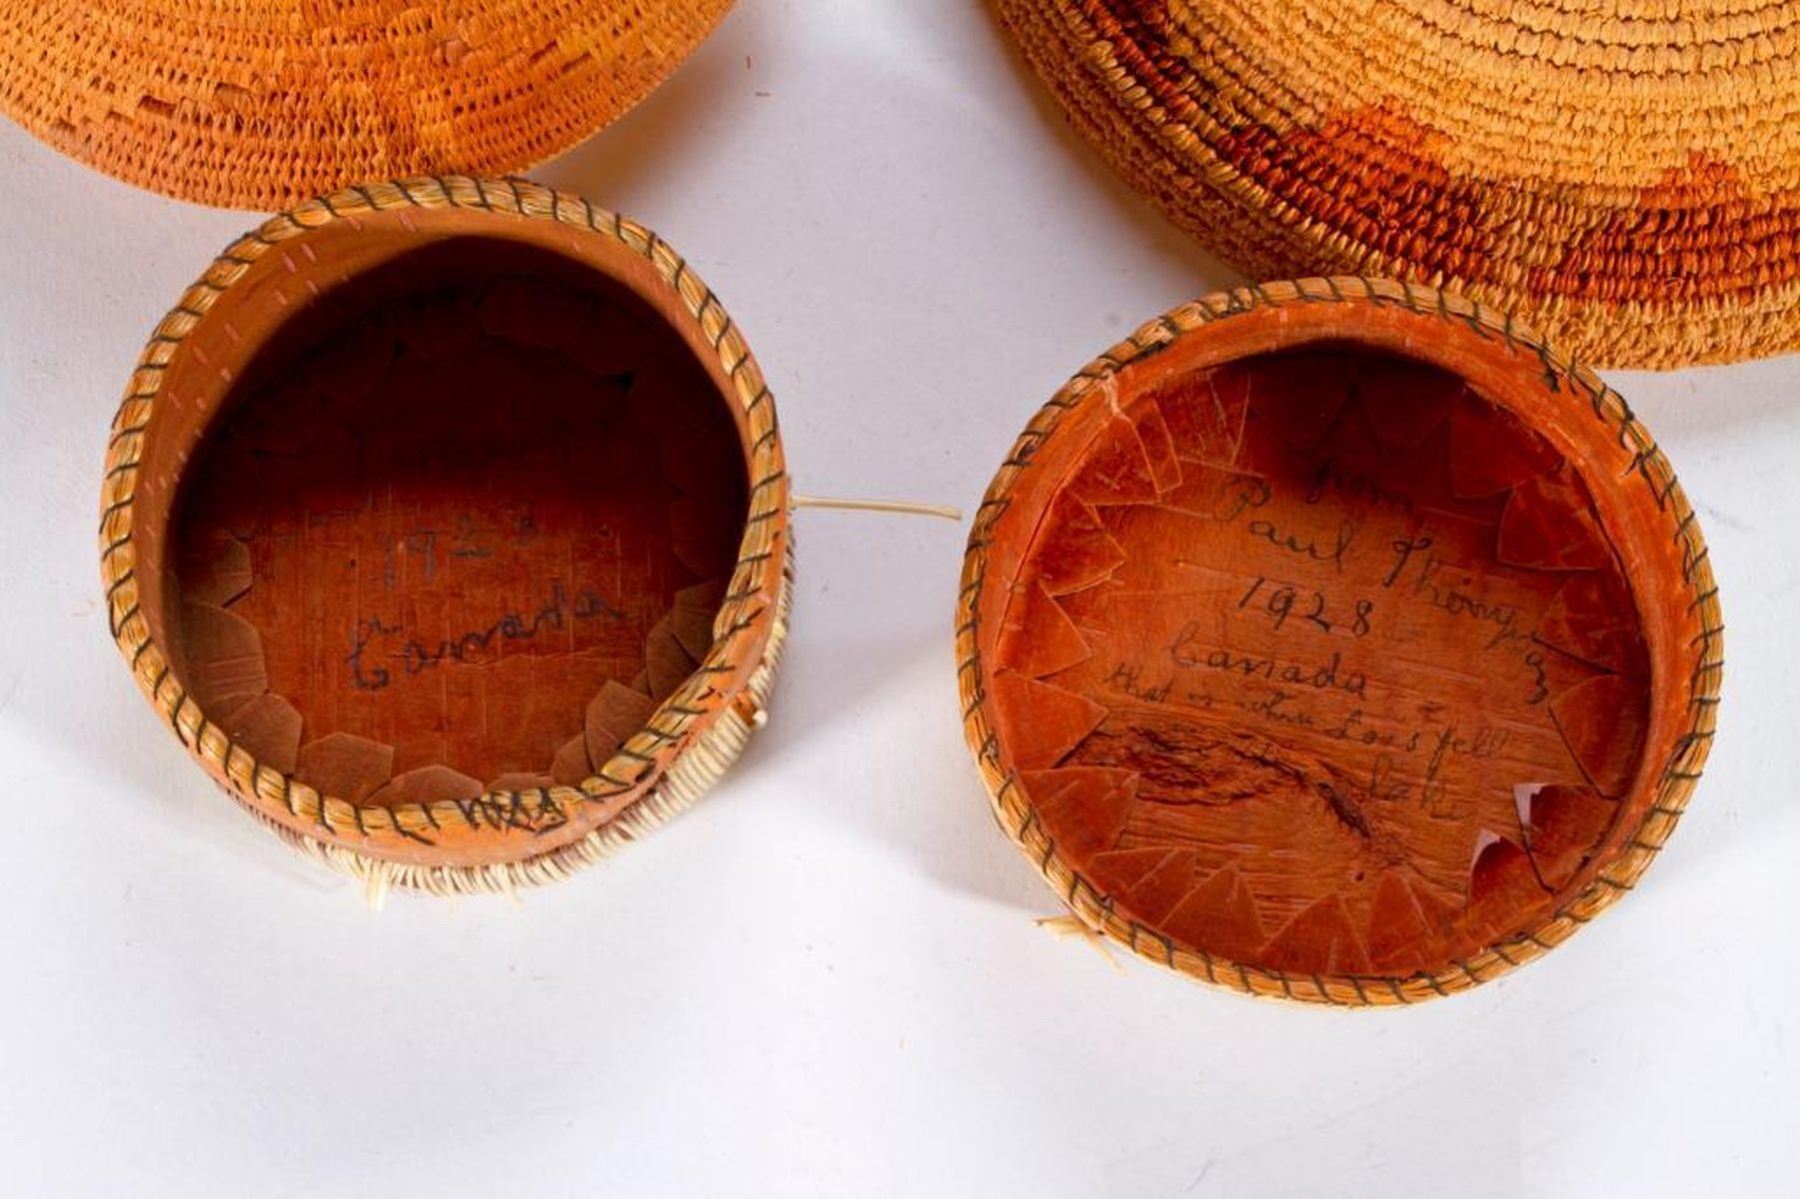 1928
Canada
from
Paul Thompson
1928
Canada
that is where Lois fell
in lake